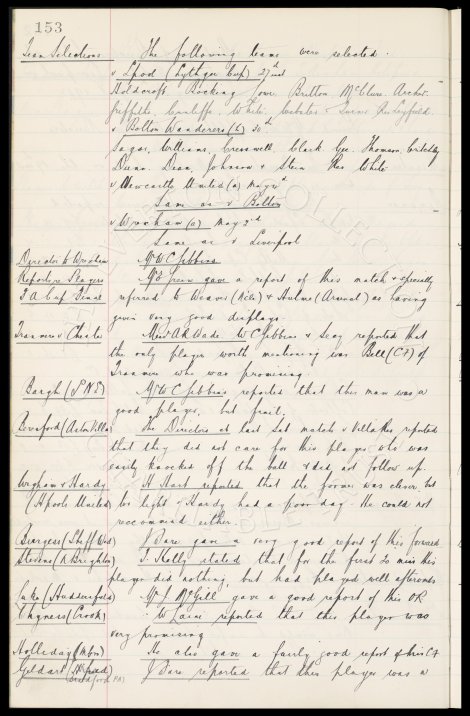 153
Team Selections The following teams were selected.
v Lpool (Lythgoe Cup) 27th inst
Holdcroft Bocking Jowe, Britton McClure Archer
Griffiths, Cunliffe, White, Webster & Res Leyfield.
v Bolton Wanderers (h) 30th
Sagar, Williams, Cresswell, Clark Gee. Thomson, Critchley
Dunn. Dean, Johnson & Stein Res White
v Newcastle United (a) May 2nd
Same as v Bolton
v Wrexham (a) May 2nd
Same as v Liverpool
Director to Wrexham Mr W C Gibbins
Report re Players Mr Green gave a report of this match & specially
F A Cup Final referred to Weaver (N'cle) & Hulme (Arsenal) as having
given very good displays.
Tranmere v Chester Messrs A R Wade W C Gibbins & Secy reported that
the only player worth mentioning was Bell (CF) of
Tranmere who was promising.
Bargh (P N E) Mr W C Gibbins reported that this man was a
good player, but frail.
Beresford (Aston Villa) The Directors at last Sat match v Villa Res reported
that they did not care for this player who was
easily knocked off the ball & did not follow up.
Wigham & Hardy H Hart reported that the former was clever but
(H'pools United) too light & Hardy had a poor day. He could not
recommend either.
Burgess (Sheff Wed) J Dare gave a very good report of this forward
Stevens (R Brighton) T. Kelly stated that for the first 20 mins this
player did nothing, but had played well afterwards
Luke (Huddersfield) Mr J McGill gave a good report of this OR
(Crook) W Laire reported that this player was
very promising
Holliday (Mbro) He also gave a fairly good report of this CF
Geldart (Bradford PA) J Dare reported that this player was a